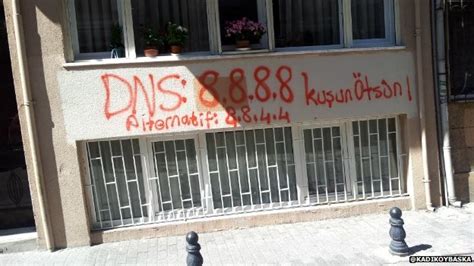 DNS: 8.8.8.8 kuşun Ötsün!
Alternatif: 8.8.4.4
@KADIKOYBASKA